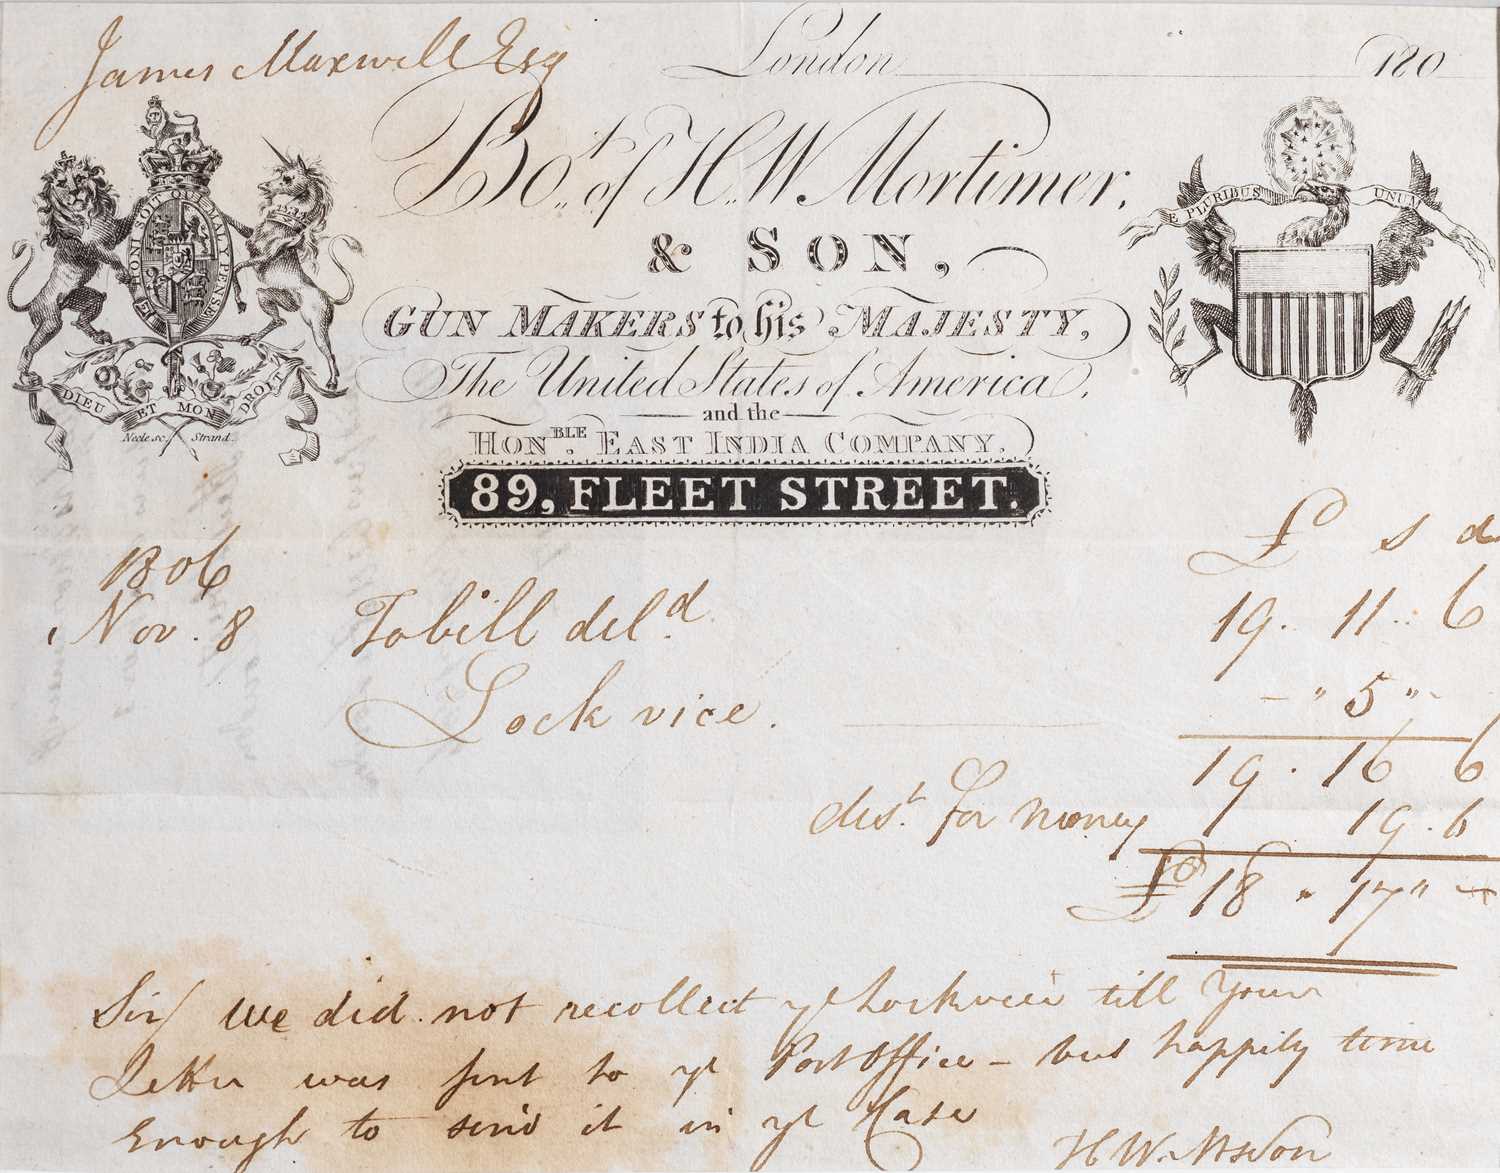 James Maxwell Esq
London 180
Bot. of H.W. Mortimer,
& SON,
GUN MAKERS to his MAJESTY,
The United States of America,
and the
HONBLE. EAST INDIA COMPANY.
89, FLEET STREET.
HONI SOIT QUI MAL Y PENSE
DIEU ET MON DROIT
Neele sc. Strand.
E PLURIBUS UNUM
£ s d
1806
Nov. 8 To bill deld. 19. 11. 6
Lock vice. - " 5 " -
19. 16 6
dist. for money 19. 6
£ 18 " 17 " -
Sir/ we did not recollect ye Lockvice till Your
Letter was sent to ye Post Office - but happily time
Enough to send it in ye Case
H W. M & Son